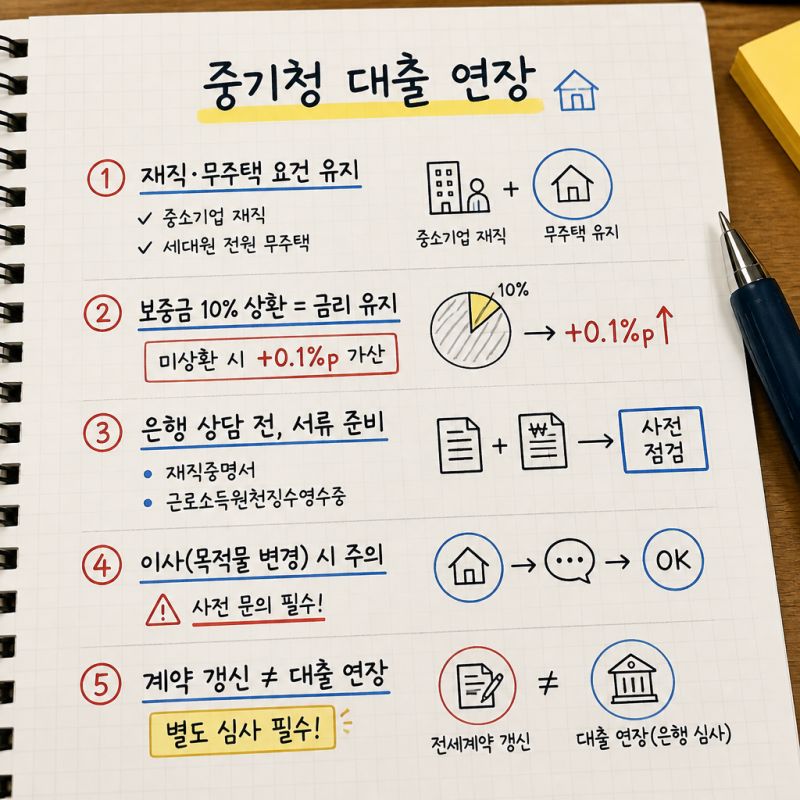 중기청 대출 연장
① 재직·무주택 요건 유지
✓ 중소기업 재직
✓ 세대원 전원 무주택
+
중소기업 재직 무주택 유지
② 보중금 10% 상환 = 금리 유지
미상환 시 +0.1%p 가산
10%
→ +0.1%p↑
③ 은행 상담 전, 서류 준비
• 재직중명서
• 근로소득원천징수영수중
+ ₩ → 사전
점검
④ 이사(목적물 변경) 시 주의
사전 문의 필수!
→ → OK
⑤ 계약 갱신 ≠ 대출 연장
별도 심사 필수!
≠
전세계약 갱신 대출 연장(은행 심사)